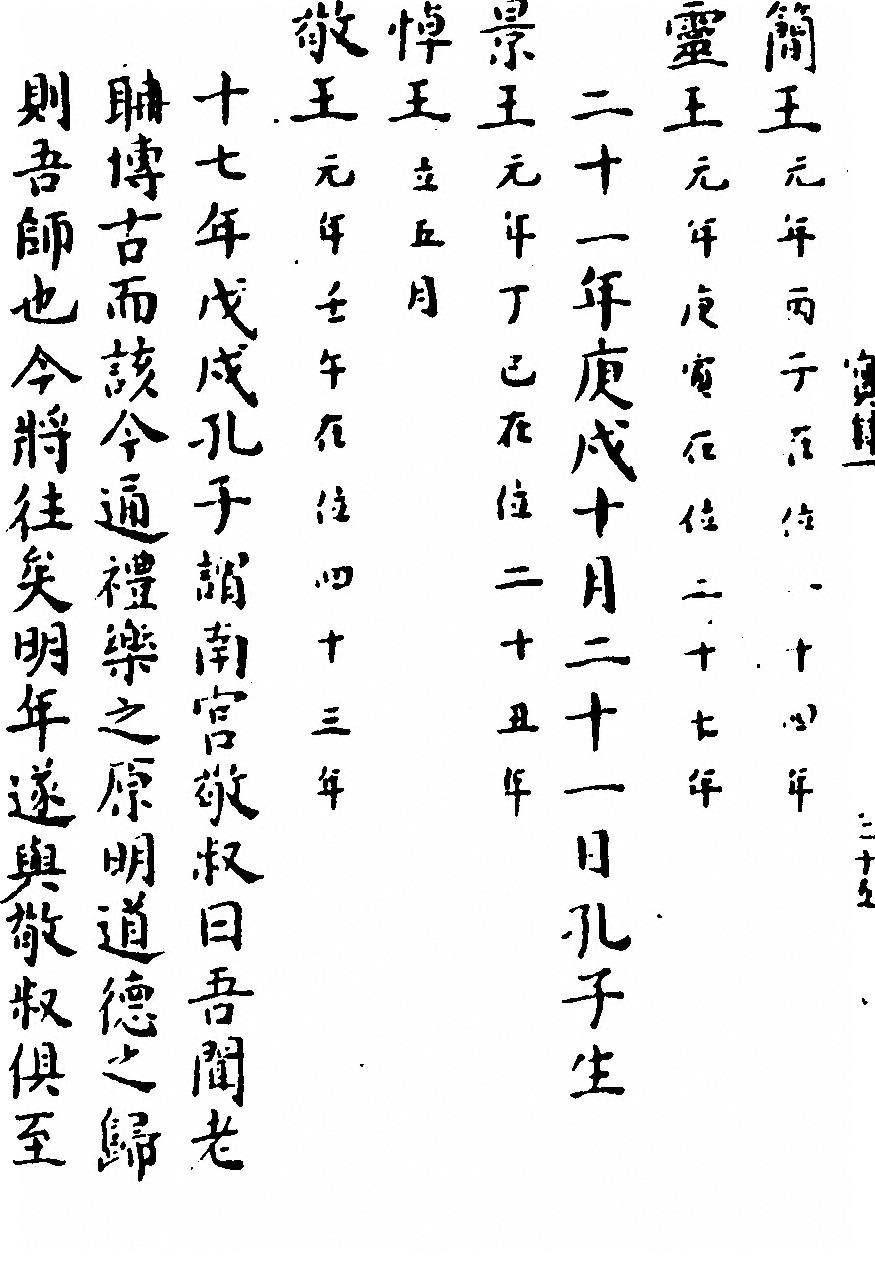 簡王元年丙子在位一十四年
靈王元年庚寅在位二十七年
二十一年庚戌十月二十一日孔子生
景王元年丁巳在位二十五年
悼王立五月
敬王元年壬午在位四十三年
十七年戊戌孔子謂南宮敬叔曰吾聞老
聃博古而該今通禮樂之原明道德之歸
則吾師也今將往矣明年遂與敬叔俱至